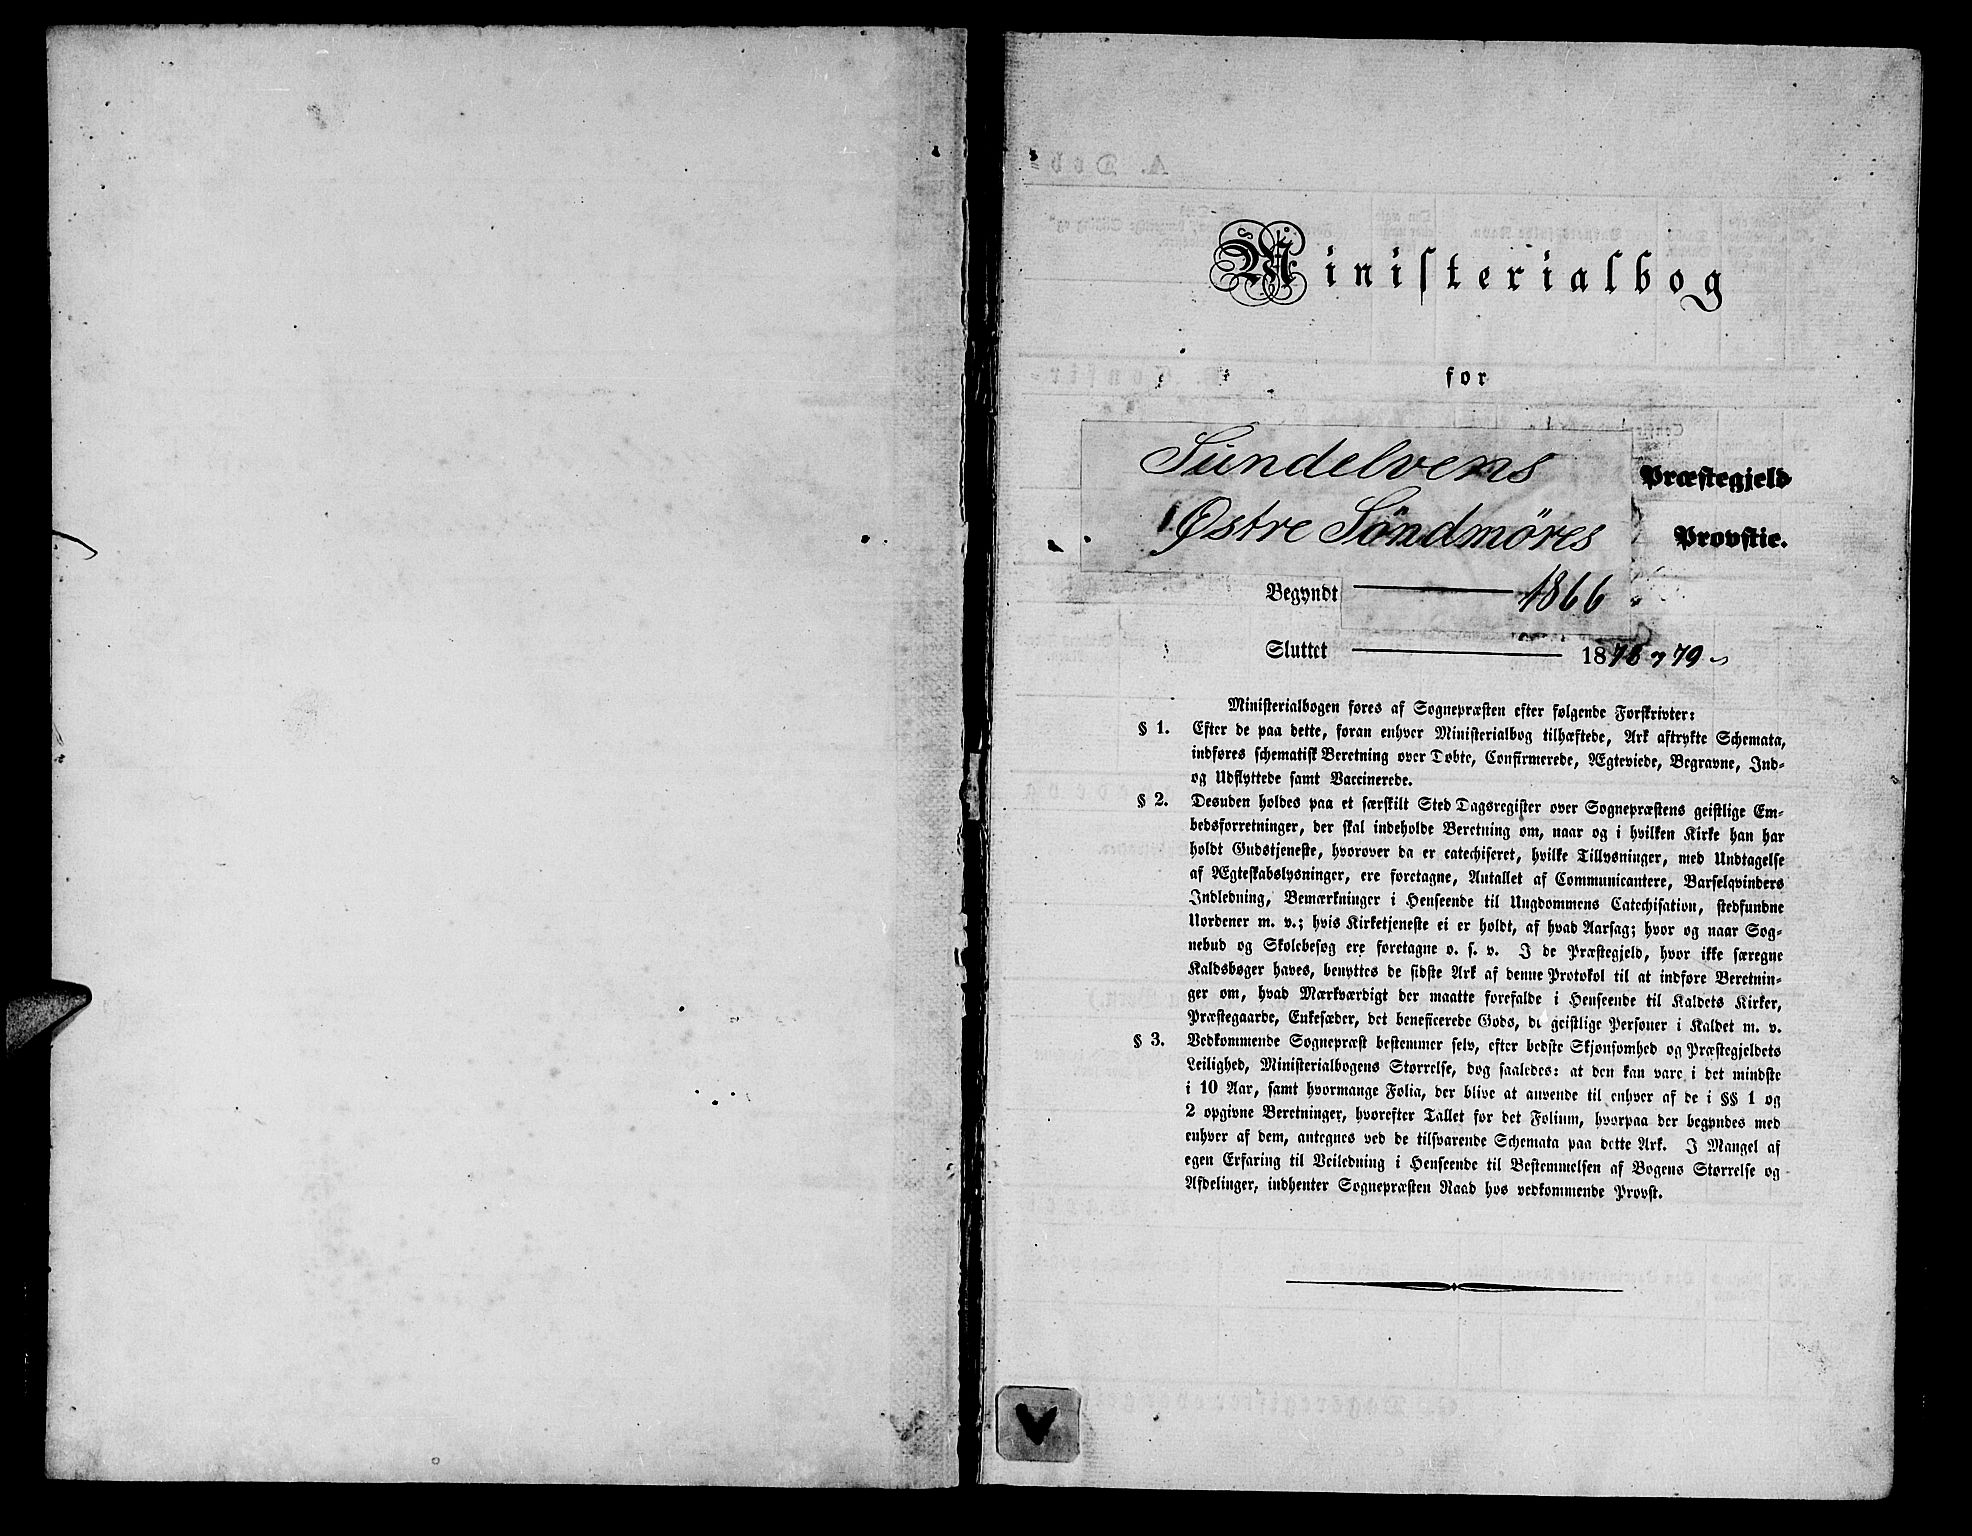 Ministerialbog
for
Sundelvens Præstegjeld
Østre Söndmöres Provstie.
Begyndt 1866
Sluttet 1878, 79
Ministerialbogen føres af Sognepræsten efter følgende Forskrivter:
§ 1. Efter de paa dette, foran enhver Ministerialbog tilhæftede, Ark aftrykte Schemata,
indføres schematisk Beretning over Døbte, Confirmerede, Ægteviede, Begravne, Ind-
og Udflyttede samt Vaccinerede.
§ 2. Desuden holdes paa et særskilt Sted Dagsregister over Sognepræstens geistlige Em-
bedsforretninger, der skal indeholde Beretning om, naar og i hvilken Kirke han har
holdt Gudstjeneste, hvorover da er catechiseret, hvilke Tillysninger, med Undtagelse
af Ægteskabslysninger, ere foretagne, Antallet af Communicantere, Barselqvinders
Indledning, Bemærkninger i Henseende til Ungdommens Catechisation, stedfundne
Uordener m. v.; hvis Kirketjeneste ei er holdt, af hvad Aarsag; hvor og naar Sog-
nebud og Skolebesøg ere foretagne o. s. v. I de Præstegjeld, hvor ikke særegne
Kaldsbøger haves, benyttes de sidste Ark af denne Protokol til at indføre Beretnin-
ger om, hvad Mærkværdigt der maatte forefalde i Henseende til Kaldets Kirker,
Præstegaarde, Enkesæder, det beneficerede Gods, de geistlige Personer i Kaldet m. v.
§ 3. Vedkommende Sognepræst bestemmer selv, efter bedste Skjønsomhed og Præstegjeldets
Leilighed, Ministerialbogens Størrelse, dog saaledes: at den kan vare i det mindste
i 10 Aar, samt hvormange Folia, der blive at anvende til enhver af de i §§ 1 og
2 opgivne Beretninger, hvorefter Tallet for det Folium, hvorpaa der begyndes med
enhver af dem, antegnes ved de tilsvarende Schemata paa dette Ark. I Mangel af
egen Erfaring til Veiledning i Henseende til Bestemmelsen af Bogens Størrelse og
Afdelinger, indhenter Sognepræsten Raad hos vedkommende Provst.
V